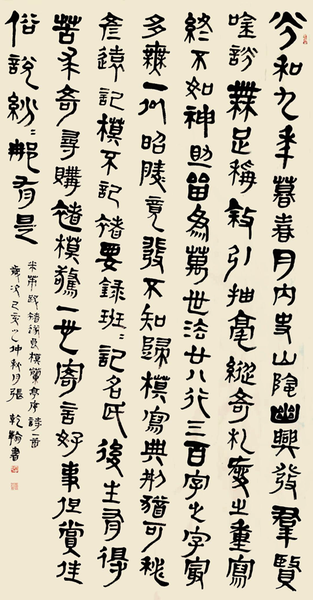 永和九年暮春月內史山陰幽興發羣賢
唫詠無足稱敘引抽毫縱奇札愛之重寫
終不如神助留為萬世法廿八行三百字之字最
多無一似昭陵竟發不知歸模寫典刑猶可秘
彥遠記模不記褚要錄班〻記名氏後生有得
苦求奇尋購褚模驚一世寄言好事但賞佳
俗說紛〻那有是
米芾題褚遂良模蘭亭序詩一首
歲次己亥之秋月張乾書